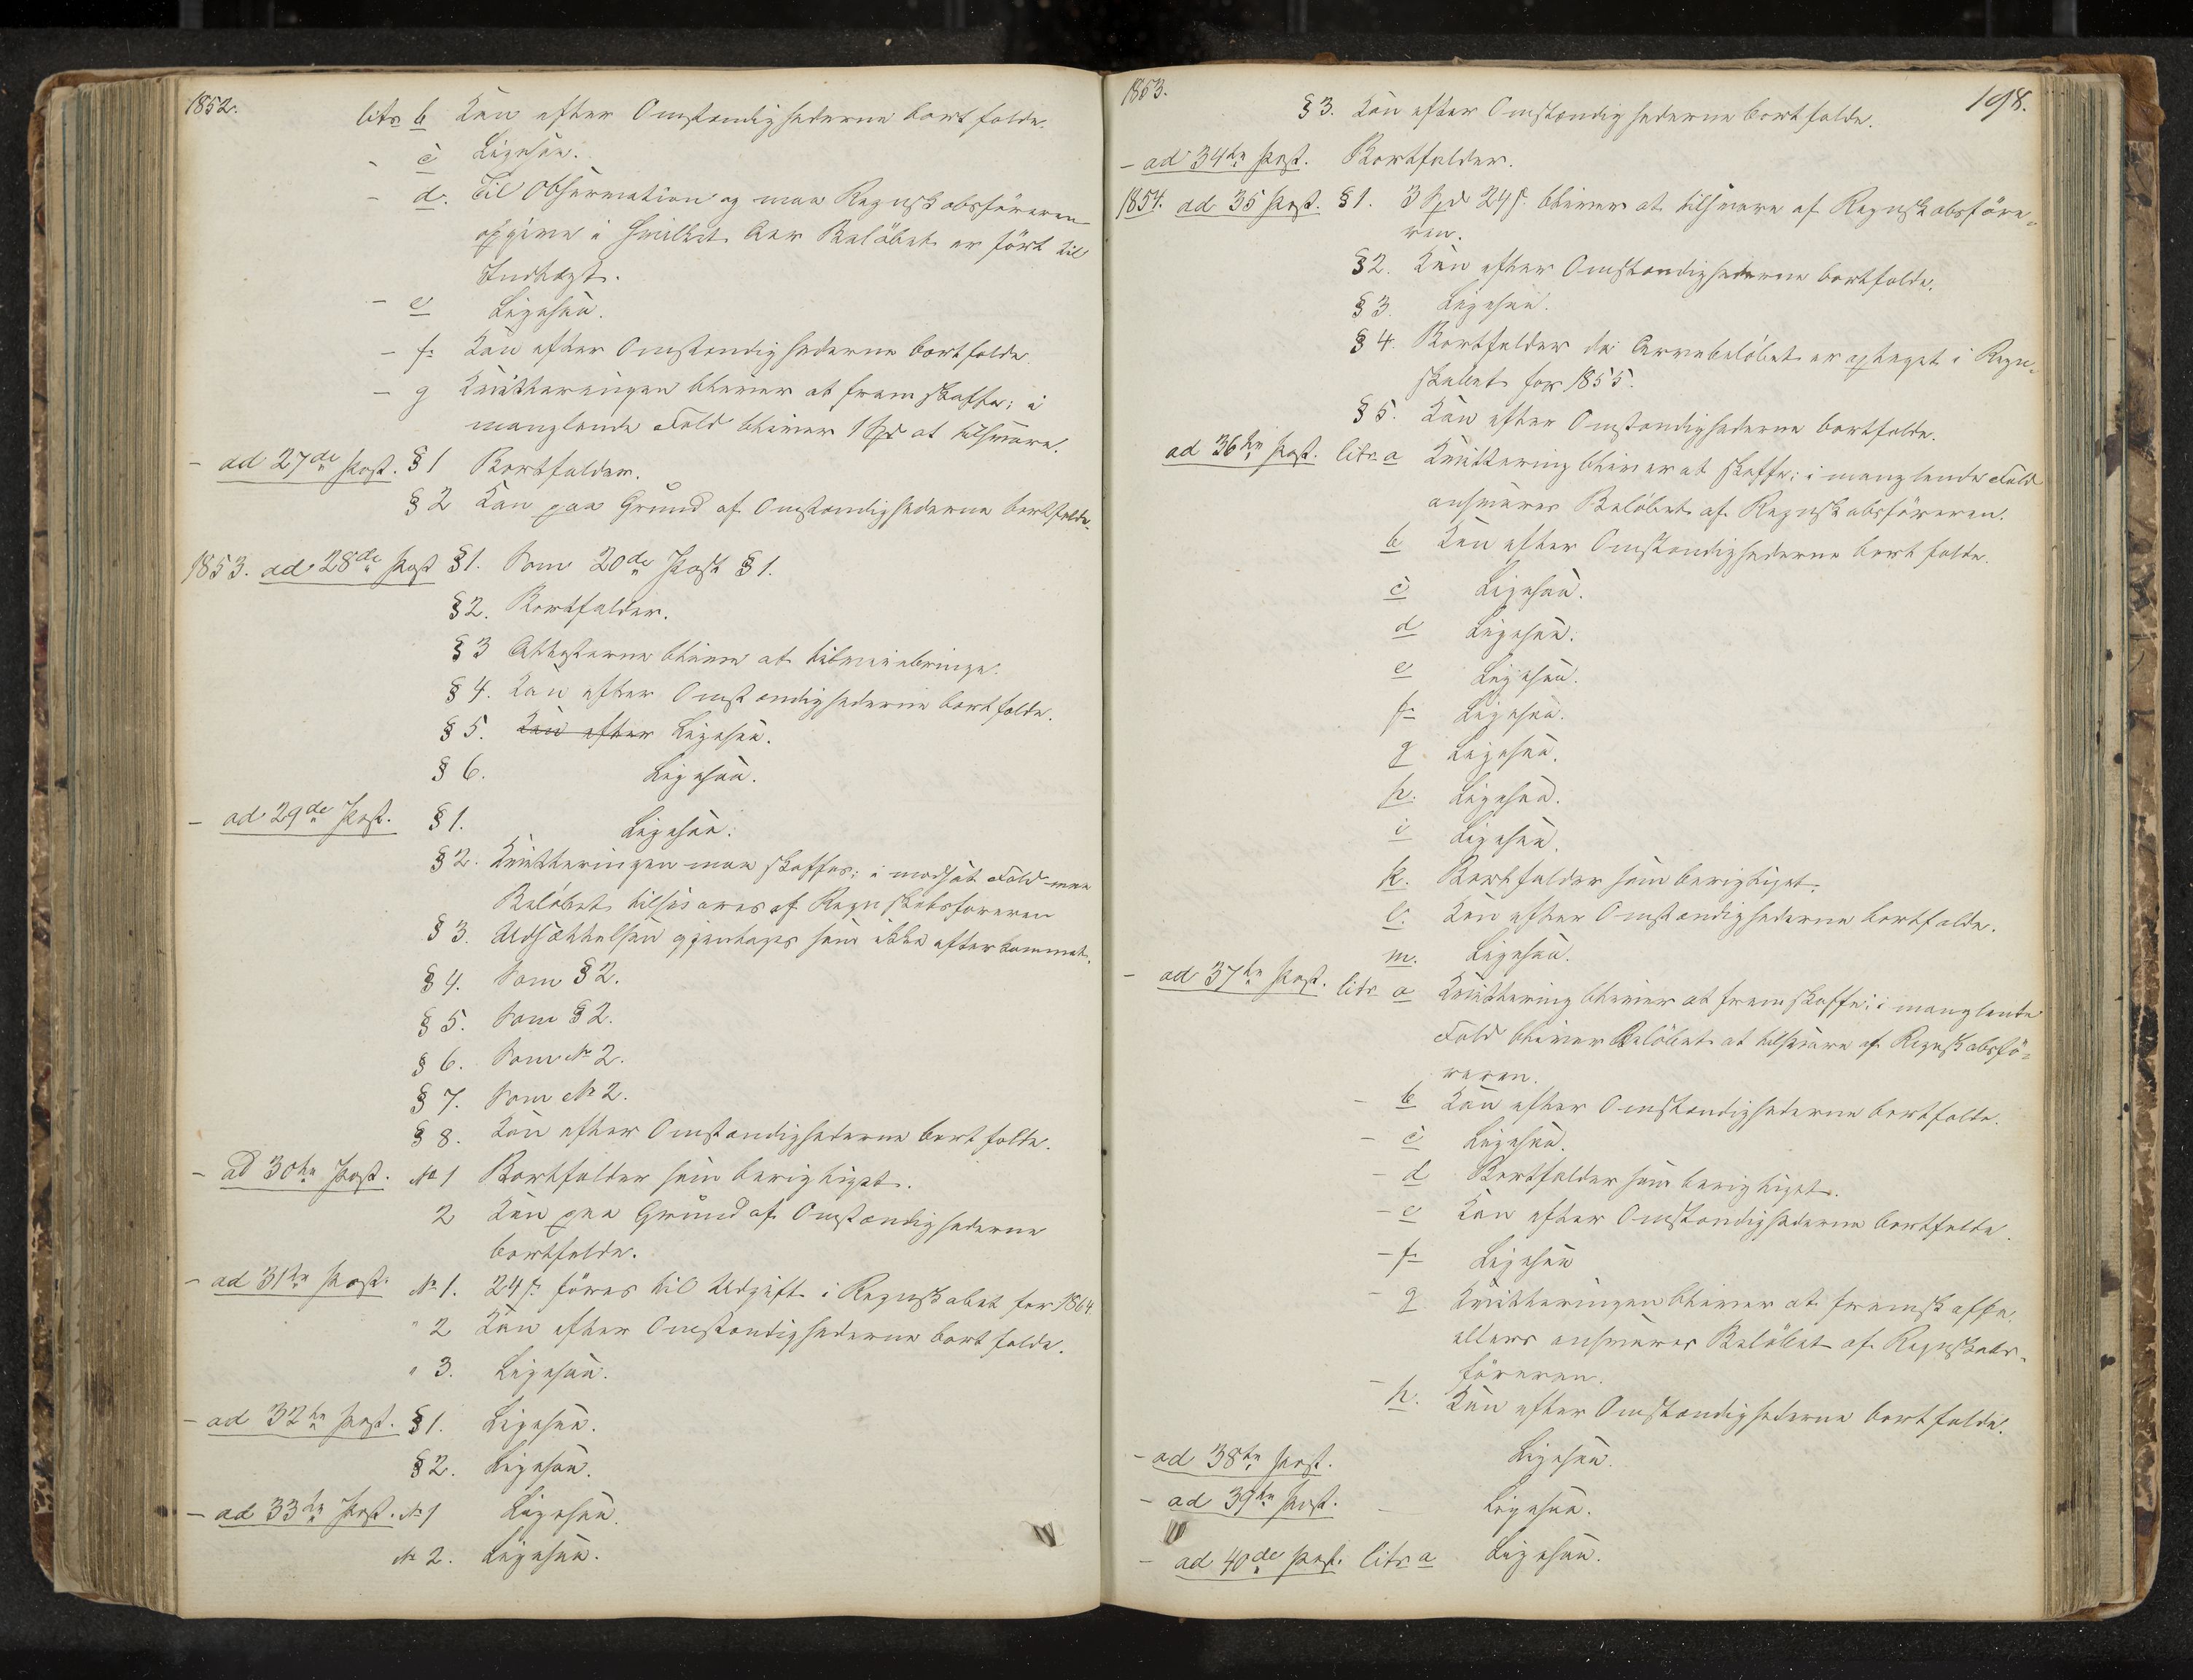 1852.
litr b Kan efter Omstændighederne bortfalde.
- c Ligesaa.
- d. Til Observation og maa Regnskabsföreren
opgive i hvilket Aar Belöbet er fört til
Indtægt.
- e Ligesaa.
- f. Kan efter Omstændighederne bortfalde.
- g Kvitteringen bliver at fremskaffe; i
manglende Fald bliver 1 Spd at tilsvare.
- ad 27de Post. § 1 Bortfalder.
§ 2 Kan paa Grund af Omstændighederne bortfalde.
1853. ad 28de Post § 1. Som 20de Post § 1.
§ 2. Bortfalder.
§ 3 Attesterne blive at tilveiebringe.
§ 4. Kan efter Omstændighederne bortfalde.
§ 5. Kan efter Ligesaa.
§ 6. Ligesaa.
- ad 29de Post. § 1. Ligesaa.
§ 2. Kvitteringen maa skaffes; i modsat Fald maa
Belöbet tilsvares af Regnskabsföreren
§ 3. Udsættelsen gjentages som ikke efterkommet.
§ 4. Som § 2.
§ 5. Som § 2.
§ 6. Som № 2.
§ 7. Som № 2.
§ 8. Kan efter Omstændighederne bortfalde.
- ad 30te Post. № 1 Bortfalder som berigtiget.
2 Kan paa Grund af Omstændighederne
bortfalde.
- ad 31te Post. № 1. 24 ß föres til Udgift i Regnskabet for 1864.
" 2 Kan efter Omstændighederne bortfalde.
" 3. Ligesaa.
- ad 32te Post. § 1. Ligesaa.
§ 2. Ligesaa.
- ad 33te Post. № 1 Ligesaa.
№ 2. Ligesaa.
1853.
198.
§ 3. Kan efter Omstændighederne bortfalde.
- ad 34te Post. Bortfalder.
1854. ad 35 Post. § 1. 3 Spd 24 ß bliver at tilsvare af Regnskabsföre-
ren.
§ 2. Kan efter Omstændighederne bortfalde.
§ 3. Ligesaa.
§ 4. Bortfalder da Arvebelöbet er optaget i Regn-
skabet for 1855.
§ 5. Kan efter Omstændighederne bortfalde.
ad 36te Post. litr. a Kvittering bliver at skaffe; i manglende Fald
ansvares Belöbet af Regnskabsföreren.
b Kan efter Omstændighederne bortfalde.
c Ligesaa.
d Ligesaa.
e Ligesaa.
f Ligesaa.
g Ligesaa.
h. Ligesaa.
i Ligesaa.
k. Bortfalder som berigtiget.
l. Kan efter Omstændighederne bortfalde.
m. Ligesaa.
- ad 37te Post. litr a Kvittering bliver at fremskaffe; i manglende
Fald bliver Belöbet at tilsvare af Regnskabsfö-
reren.
- b Kan efter Omstændighederne bortfalde.
- c Ligesaa.
- d Bortfalder som berigtiget.
- e Kan efter Omstændighederne bortfalde.
- f. Ligesaa
- g Kvitteringen bliver at fremskaffe,
ellers ansvares Belöbet af Regnskabs-
föreren.
- h. Kan efter Omstændighederne bortfalde.
- ad 38te Post. Ligesaa.
- ad 39te Post. - Ligesaa.
- ad 40de Post. litr. a Ligesaa.